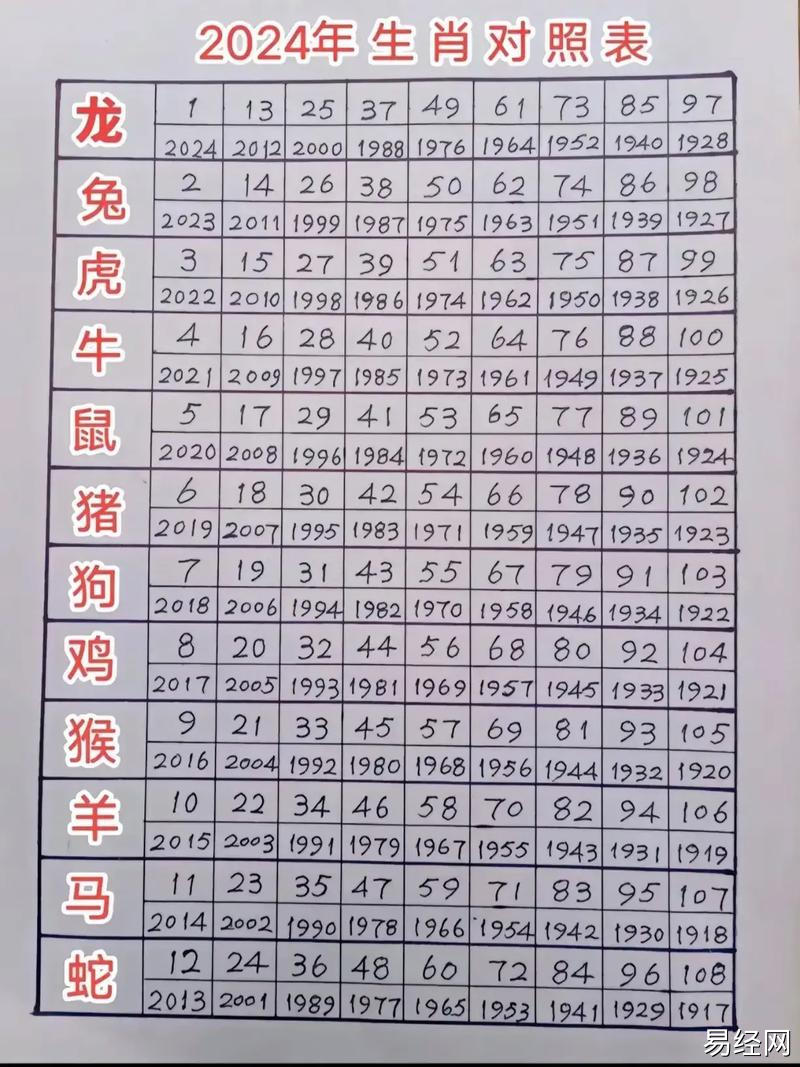 2024年生肖对照表
龙 1 13 25 37 49 61 73 85 97
2024 2012 2000 1988 1976 1964 1952 1940 1928
兔 2 14 26 38 50 62 74 86 98
2023 2011 1999 1987 1975 1963 1951 1939 1927
虎 3 15 27 39 51 63 75 87 99
2022 2010 1998 1986 1974 1962 1950 1938 1926
牛 4 16 28 40 52 64 76 88 100
2021 2009 1997 1985 1973 1961 1949 1937 1925
鼠 5 17 29 41 53 65 77 89 101
2020 2008 1996 1984 1972 1960 1948 1936 1924
猪 6 18 30 42 54 66 78 90 102
2019 2007 1995 1983 1971 1959 1947 1935 1923
狗 7 19 31 43 55 67 79 91 103
2018 2006 1994 1982 1970 1958 1946 1934 1922
鸡 8 20 32 44 56 68 80 92 104
2017 2005 1993 1981 1969 1957 1945 1933 1921
猴 9 21 33 45 57 69 81 93 105
2016 2004 1992 1980 1968 1956 1944 1932 1920
羊 10 22 34 46 58 70 82 94 106
2015 2003 1991 1979 1967 1955 1943 1931 1919
马 11 23 35 47 59 71 83 95 107
2014 2002 1990 1978 1966 1954 1942 1930 1918
蛇 12 24 36 48 60 72 84 96 108
2013 2001 1989 1977 1965 1953 1941 1929 1917
易经网